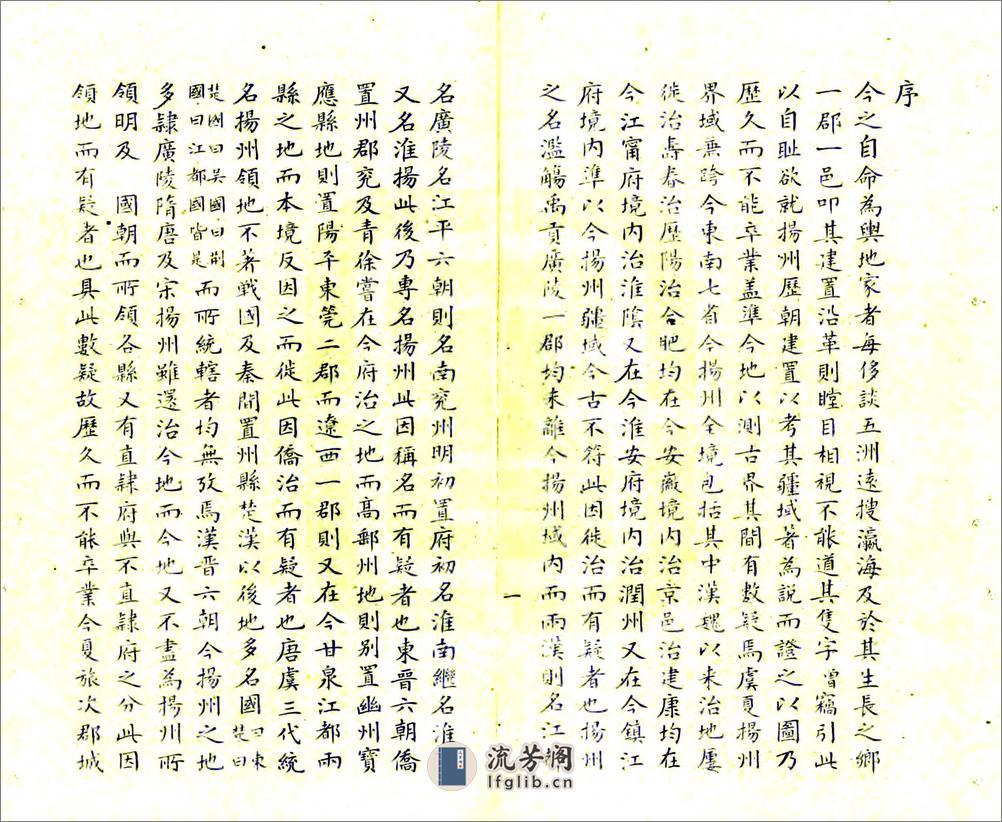 序
今之自命為輿地家者每侈談五洲遠搜瀛海及於其生長之鄉
一郡一邑叩其建置沿革則瞠目相視不能道其隻字曾竊引此
以自耻欲就揚州歷朝建置以考其疆域著為說而證之以圖乃
歷久而不能卒業盖準今地以測古界其間有數疑焉虞夏揚州
界域兼跨今東南七省今揚州全境包括其中漢魏以來治地屢
徙治壽春治歷陽治合肥均在今安徽境內治京邑治建康均在
今江甯府境內治淮陰又在今淮安府境內治潤州又在今鎮江
府境內準以今揚州疆域今古不符此因徙治而有疑者也揚州
之名濫觴禹貢廣陵一郡均未離今揚州域內而兩漢則名江
一
名廣陵名江平六朝則名南兖州明初置府初名淮南繼名淮
又名淮揚此後乃專名揚州此因稱名而有疑者也東晉六朝僑
置州郡兖及青徐嘗在今府治之地而高郵州地則别置幽州寶
應縣地則置陽平東莞二郡而遼西一郡則又在今甘泉江都兩
縣之地而本境反因之而徙此因僑治而有疑者也唐虞三代統
名揚州領地不著戰國及秦間置州縣楚漢以後地多名國曰東楚曰
楚國曰吳國曰荆國曰江都國皆是而所統轄者均無攷焉漢晋六朝今揚州之地
多隸廣陵隋唐及宋揚州雖還治今地而今地又不盡為揚州所
領明及 國朝而所領各縣又有直隸府與不直隸府之分此因
領地而有疑者也具此數疑故歷久而不能卒業今夏旅次郡城
流芳阁
lfglib.cn